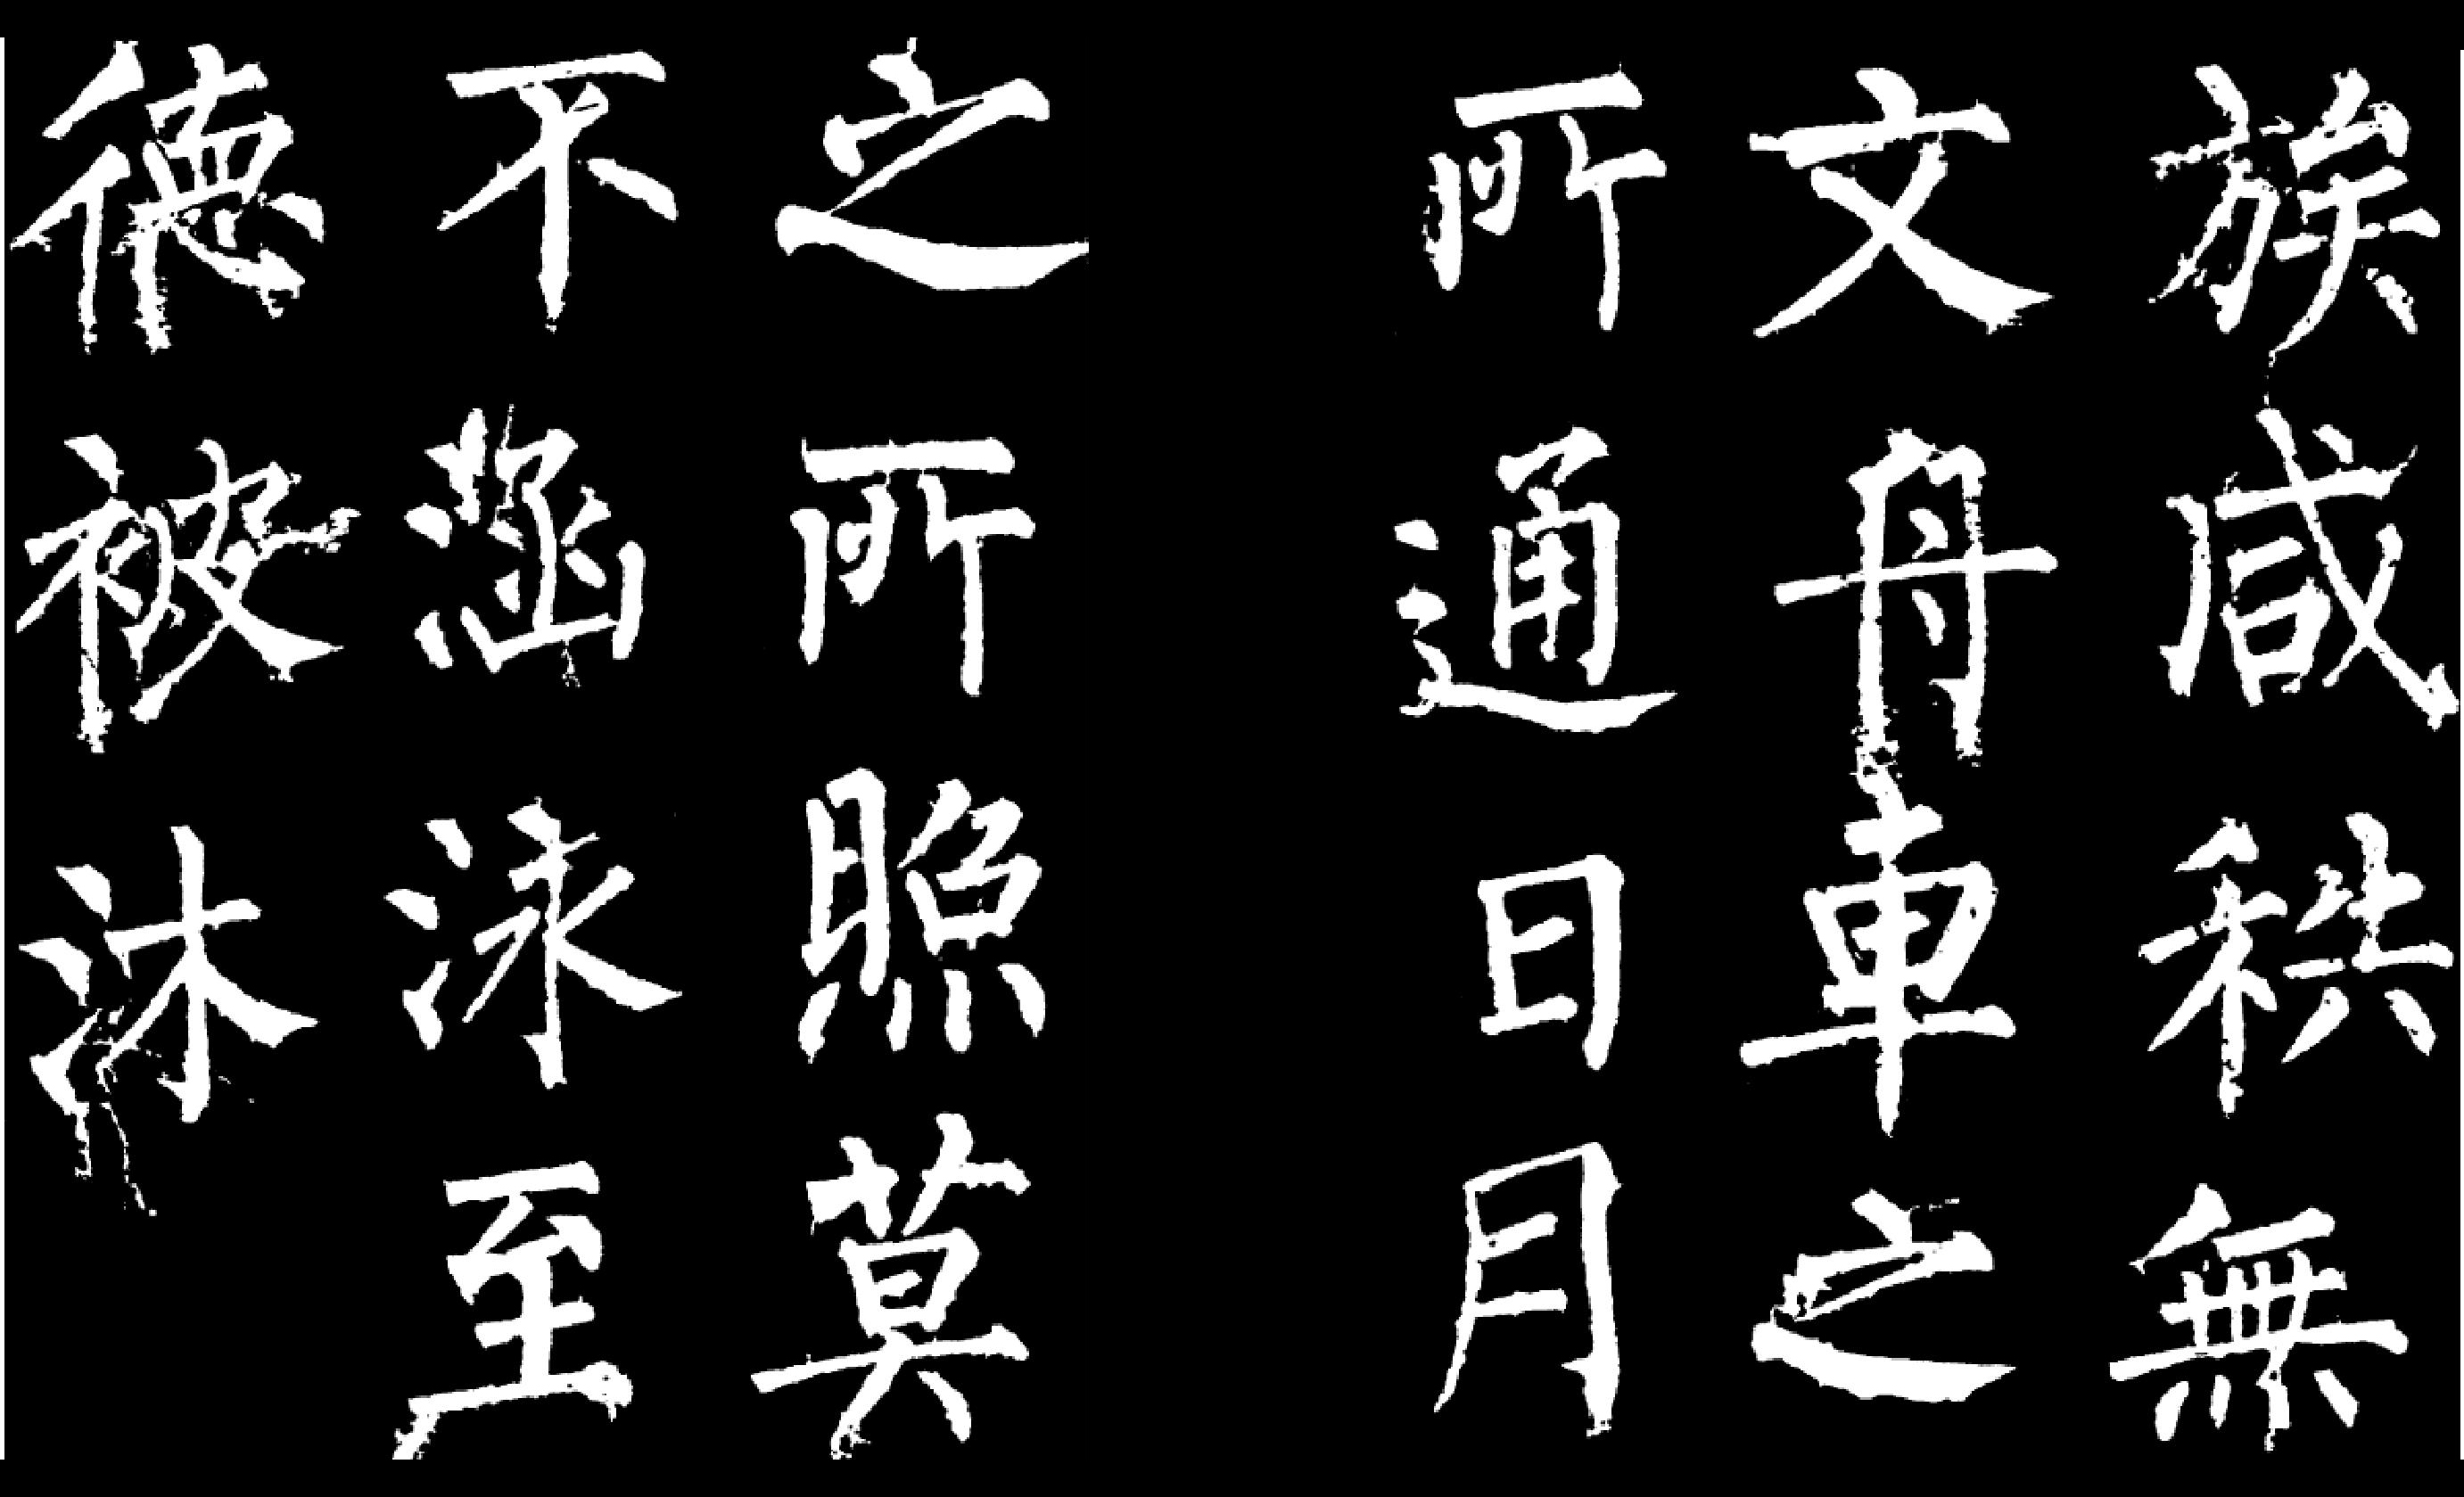 族咸秩無
文舟車之
所通日月
之所照莫
不涵泳至
德被沐